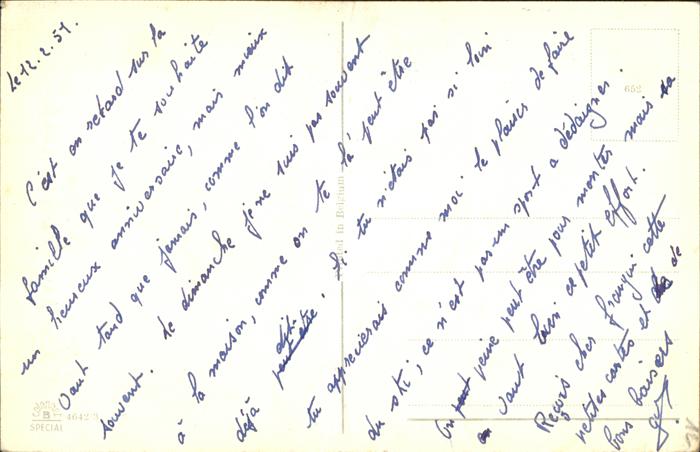 Le 12.2.51.
C'est en retard sur la
famille que je te souhaite
un heureux anniversaire, mais mieux
vaut tard que jamais, comme l'on dit
souvent. le dimanche je ne suis pas souvent
à la maison, comme on te l'à peut être
déjà dit. Si tu n'étais pas si loin
tu apprécierais comme moi le plaisir de faire
du ski, ce n'est pas un sport a dédaigner.
Un peine peut être pour monter mais sa
en vaut bien ce petit effort.
Reçois cher françqui cette
petites cartes et de
bons baisers
guy
652
Printed in Belgium
B
4642/3
SPECIAL